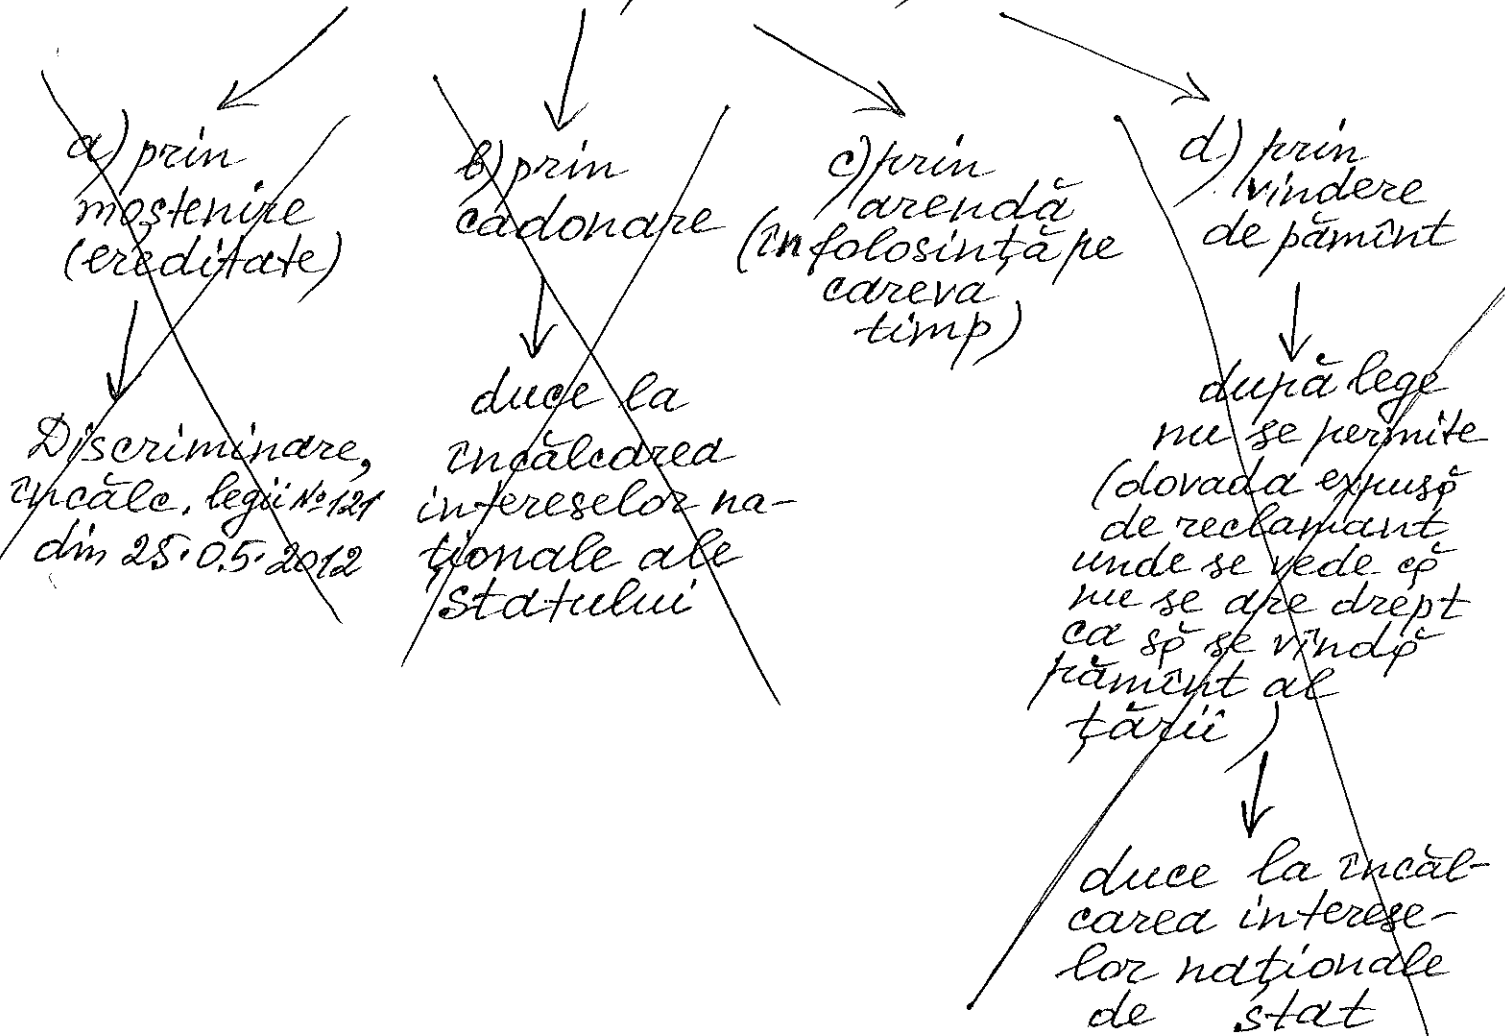 a) prin
moștenire
(ereditate)
Discriminare,
încălc. legii № 121
din 25.05.2012
b) prin
cadonare
duce la
încălcarea
intereselor na-
ționale ale
statului
c) prin
arendă
(în folosință pe
careva
timp)
d) prin
vindere
de pămînt
după lege
nu se permite
(dovada expusă
de reclamant
unde se vede că
nu se are drept
ca să se vîndă
pămînt al
țării)
duce la încăl-
carea interese-
lor naționale
de stat